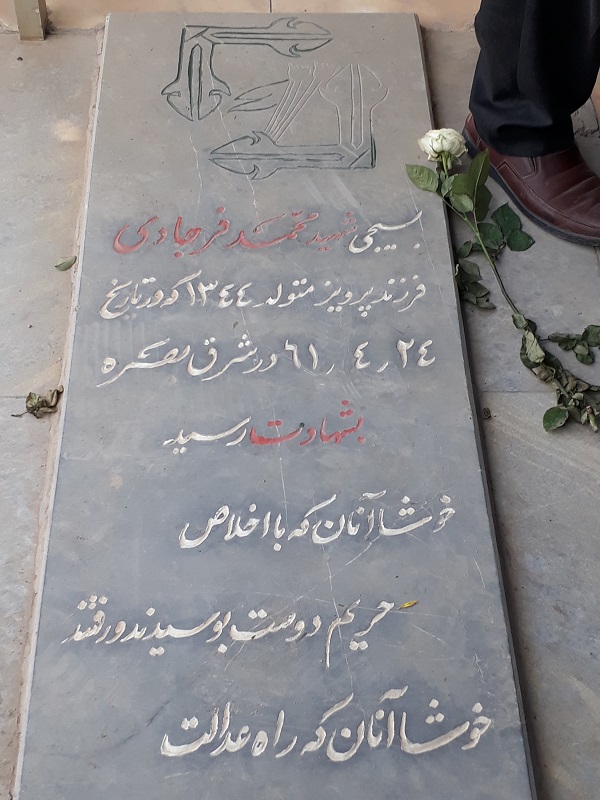 بسیجی شهید محمد فرجادی
فرزند پرویز متولد ۱۳۴۴ که در تاریخ
۲۴ ر ۴ ر ۶۱ در شرق بصره
بشهادت رسید
خوشا آنان که با اخلاص
حریم دوست بوسیدند و رفتند
خوشا آنان که راه عدالت